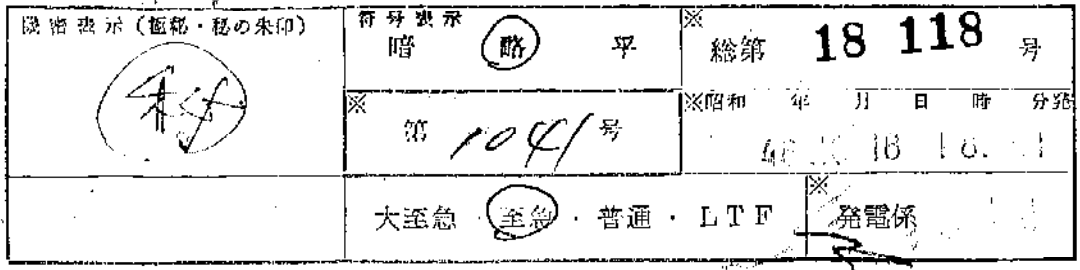 機密表示（極秘・秘の朱印）
秘
符号表示
暗 略 平
※
総第 18 118 号
※
第 1041 号
※昭和 年 月 日 時 分発
大至急・至急・普通・LTF
※
発電係